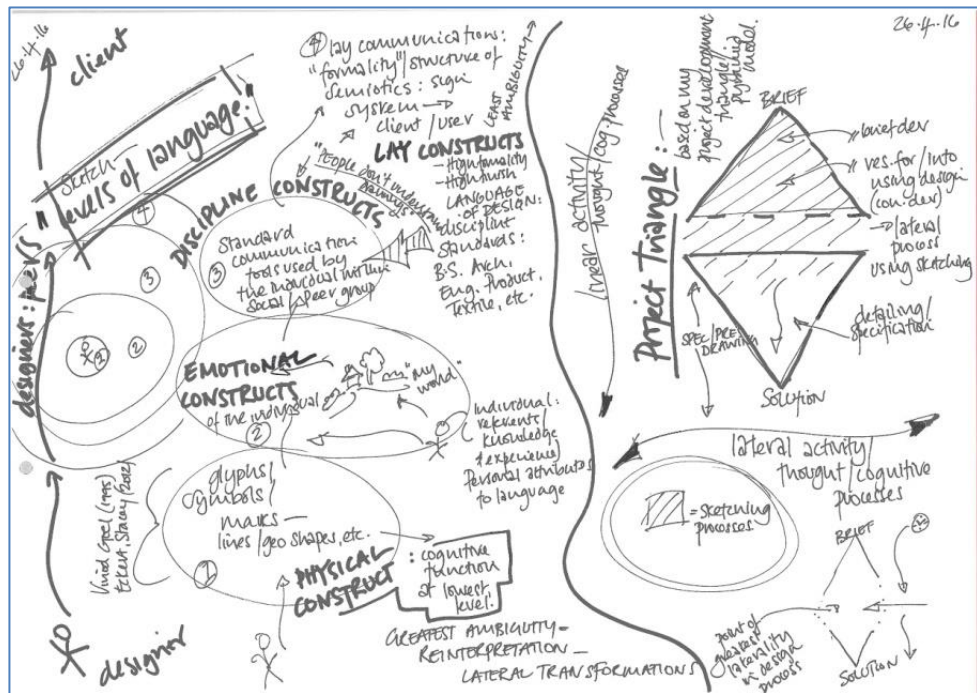 26.4.16
client
Sketch
"levels of language:"
designers: peers
④
③
②
①
Vinod Goel (1995)
Eckert, Stacey/2012)
designer
④ lay communications:
"formality"/structure of
semiotics: sign
system →
client/user
LEAST
AMBIGUITY
"People don't understand
drawings"
LAY CONSTRUCTS
- High formality
- High finish
LANGUAGE
OF DESIGN:
discipline
standards:
B.S. Arch.
Eng. Product.
Textile, etc.
DISCIPLINE CONSTRUCTS
Standard
communication
③ tools used by
the individual within
social/peer group
EMOTIONAL
CONSTRUCTS
of the individual
②
"my
world"
Individual:
referents/
knowledge
& experience/
Personal attributes
to language
glyphs/
symbols/
marks —
lines/geo shapes, etc.
①
PHYSICAL
CONSTRUCT
: cognitive
function
at lowest
level.
GREATEST AMBIGUITY —
REINTERPRETATION —
LATERAL TRANSFORMATIONS
linear activity/
thought/cog. processes
26.4.16
Project Triangle:
based on my
project development
triangle/
pyramid
model
BRIEF
brief dev
res. for/into
using design
(con. dev)
lateral
process
using sketching
detailing/
specification
SPEC/PRES
DRAWING
SOLUTION
lateral activity
thought/cognitive
processes
= sketching
processes
BRIEF
point of
greatest
laterality
in design
process
SOLUTION